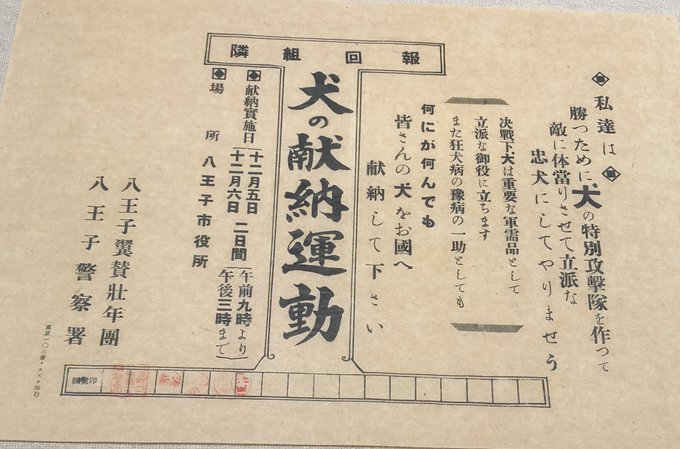 隣組回報
私達は
勝つために犬の特別攻撃隊を作つて
敵に体當りさせて立派な
忠犬にしてやりませう
決戰下、犬は重要な軍需品として
立派な御役に立ちます
また狂犬病の豫病の一助としても
何にが何んでも
皆さんの犬をお國へ
献納して下さい
犬の献納運動
献納實施日 十二月五日 十二月六日 二日間 (午前九時より 午後三時まで)
場所 八王子市役所
八王子翼賛壯年團
八王子警察署
回覽印